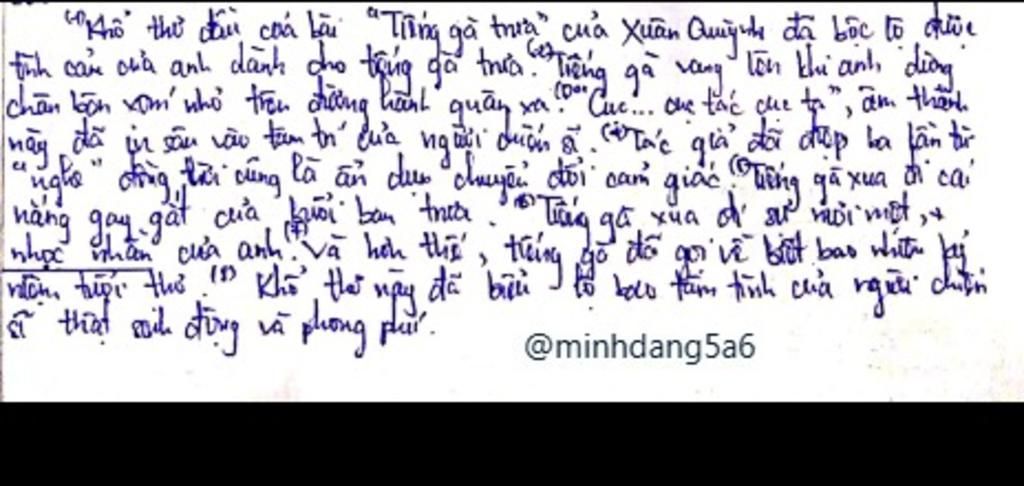 (1) Khổ thơ đầu của bài "Tiếng gà trưa" của Xuân Quỳnh đã bộc lộ được
tình cảm của anh dành cho tiếng gà trưa. (2) Tiếng gà vang lên khi anh dừng
chân bên xóm nhỏ trên đường hành quân xa. (3) "Cục... cục tác cục ta", âm thanh
này đã in sâu vào tâm trí của người chiến sĩ. (4) Tác giả đã điệp ba lần từ
"nghe" đồng thời cũng là ẩn dụ chuyển đổi cảm giác. (5) Tiếng gà xua đi cái
nắng gay gắt của buổi ban trưa. (6) Tiếng gà xua đi sự mỏi mệt,
nhọc nhằn của anh. (7) Và hơn thế, tiếng gà đã gọi về biết bao nhiêu kỷ
niệm tuổi thơ. (8) Khổ thơ này đã biểu lộ bao tâm tình của người chiến
sĩ thật sinh động và phong phú.
@minhdang5a6